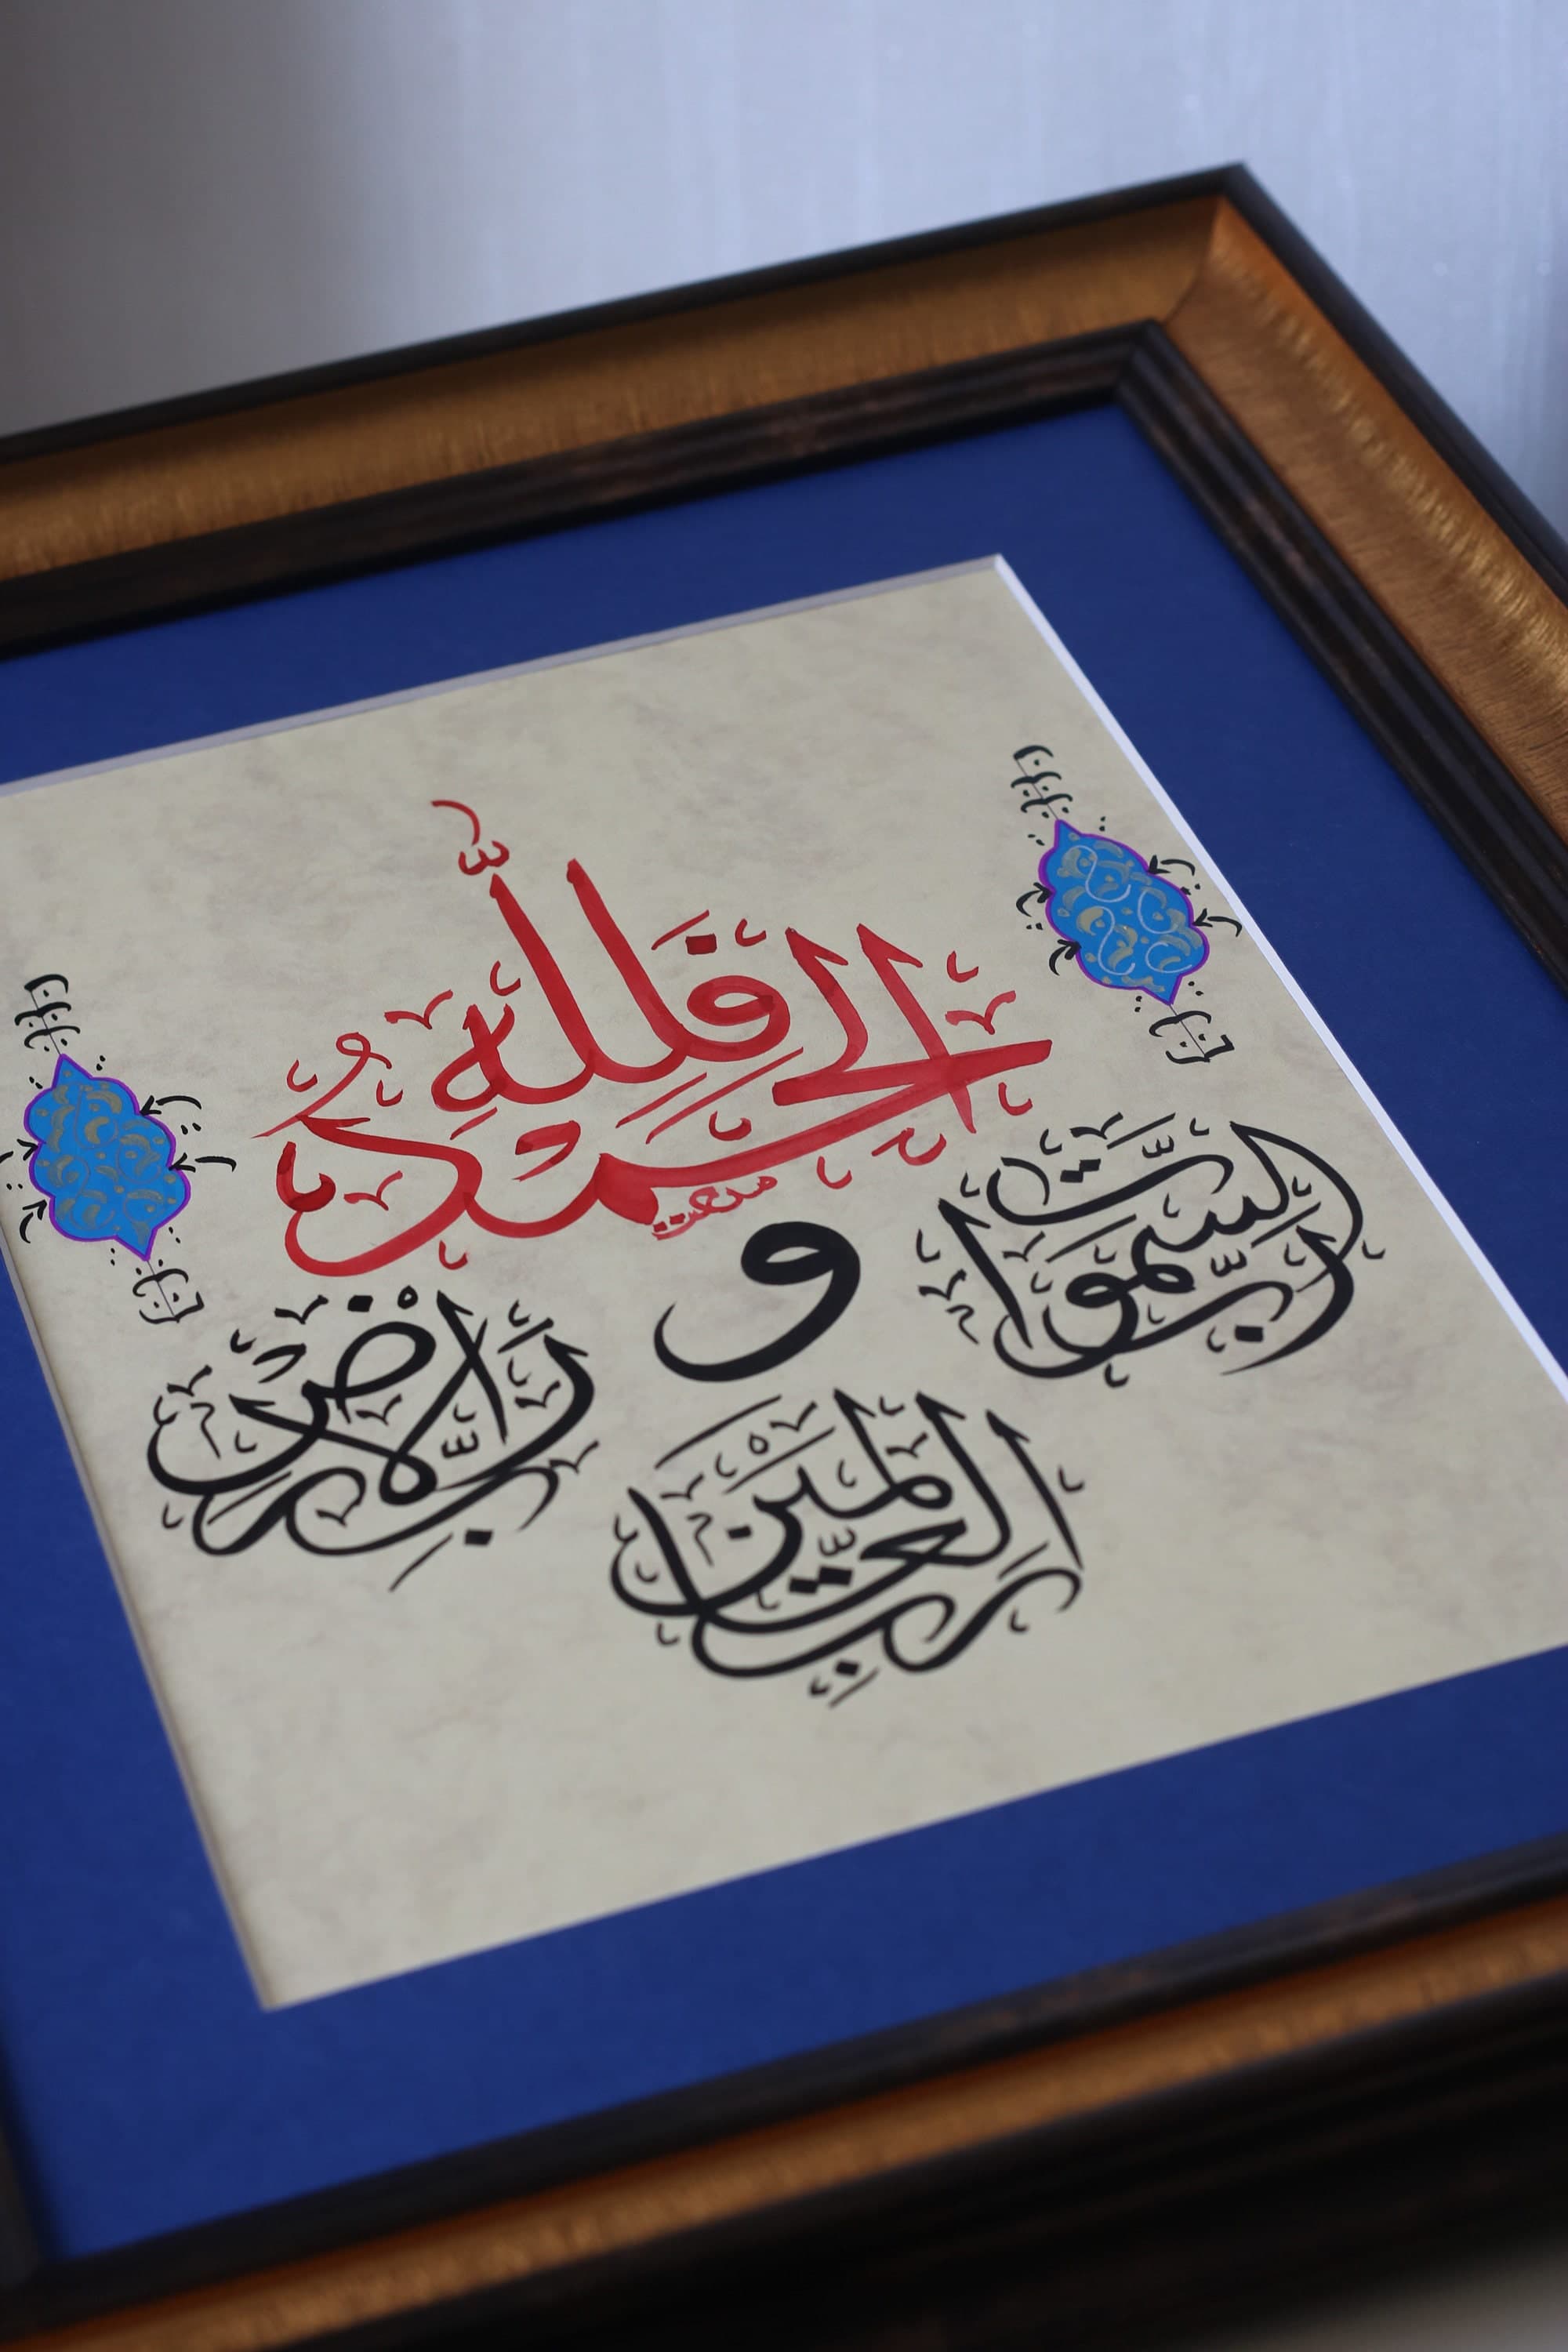 فَلِلَّهِ الْحَمْدُ
رَبِّ السَّمٰوَاتِ
وَ
رَبِّ الْأَرْضِ
رَبِّ الْعَالَمِينَ